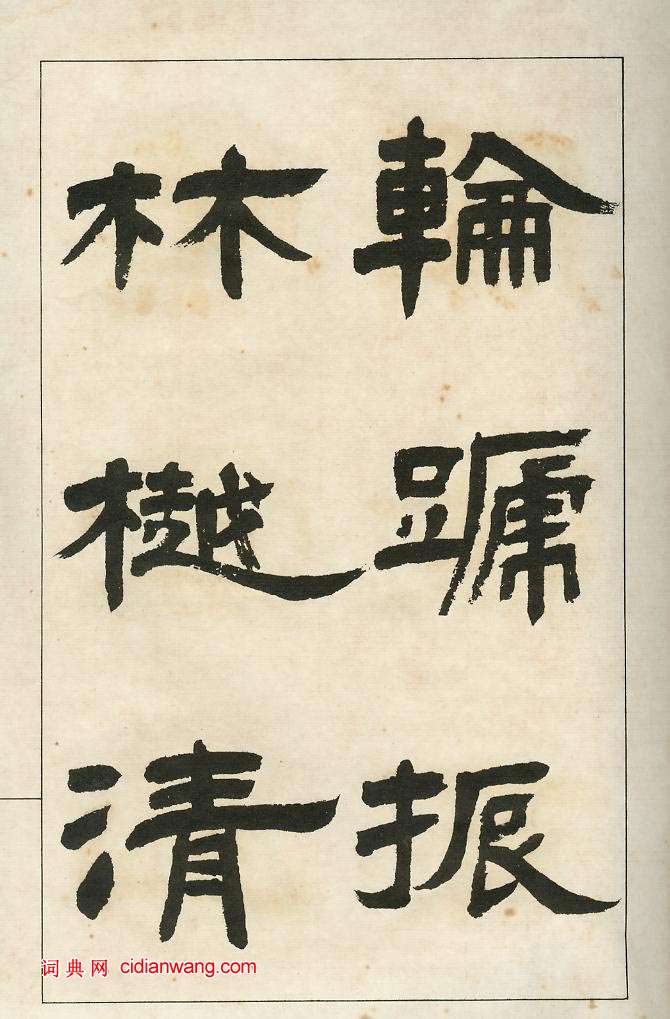 輪蹏振
林樾清
词典网 cidianwang.com